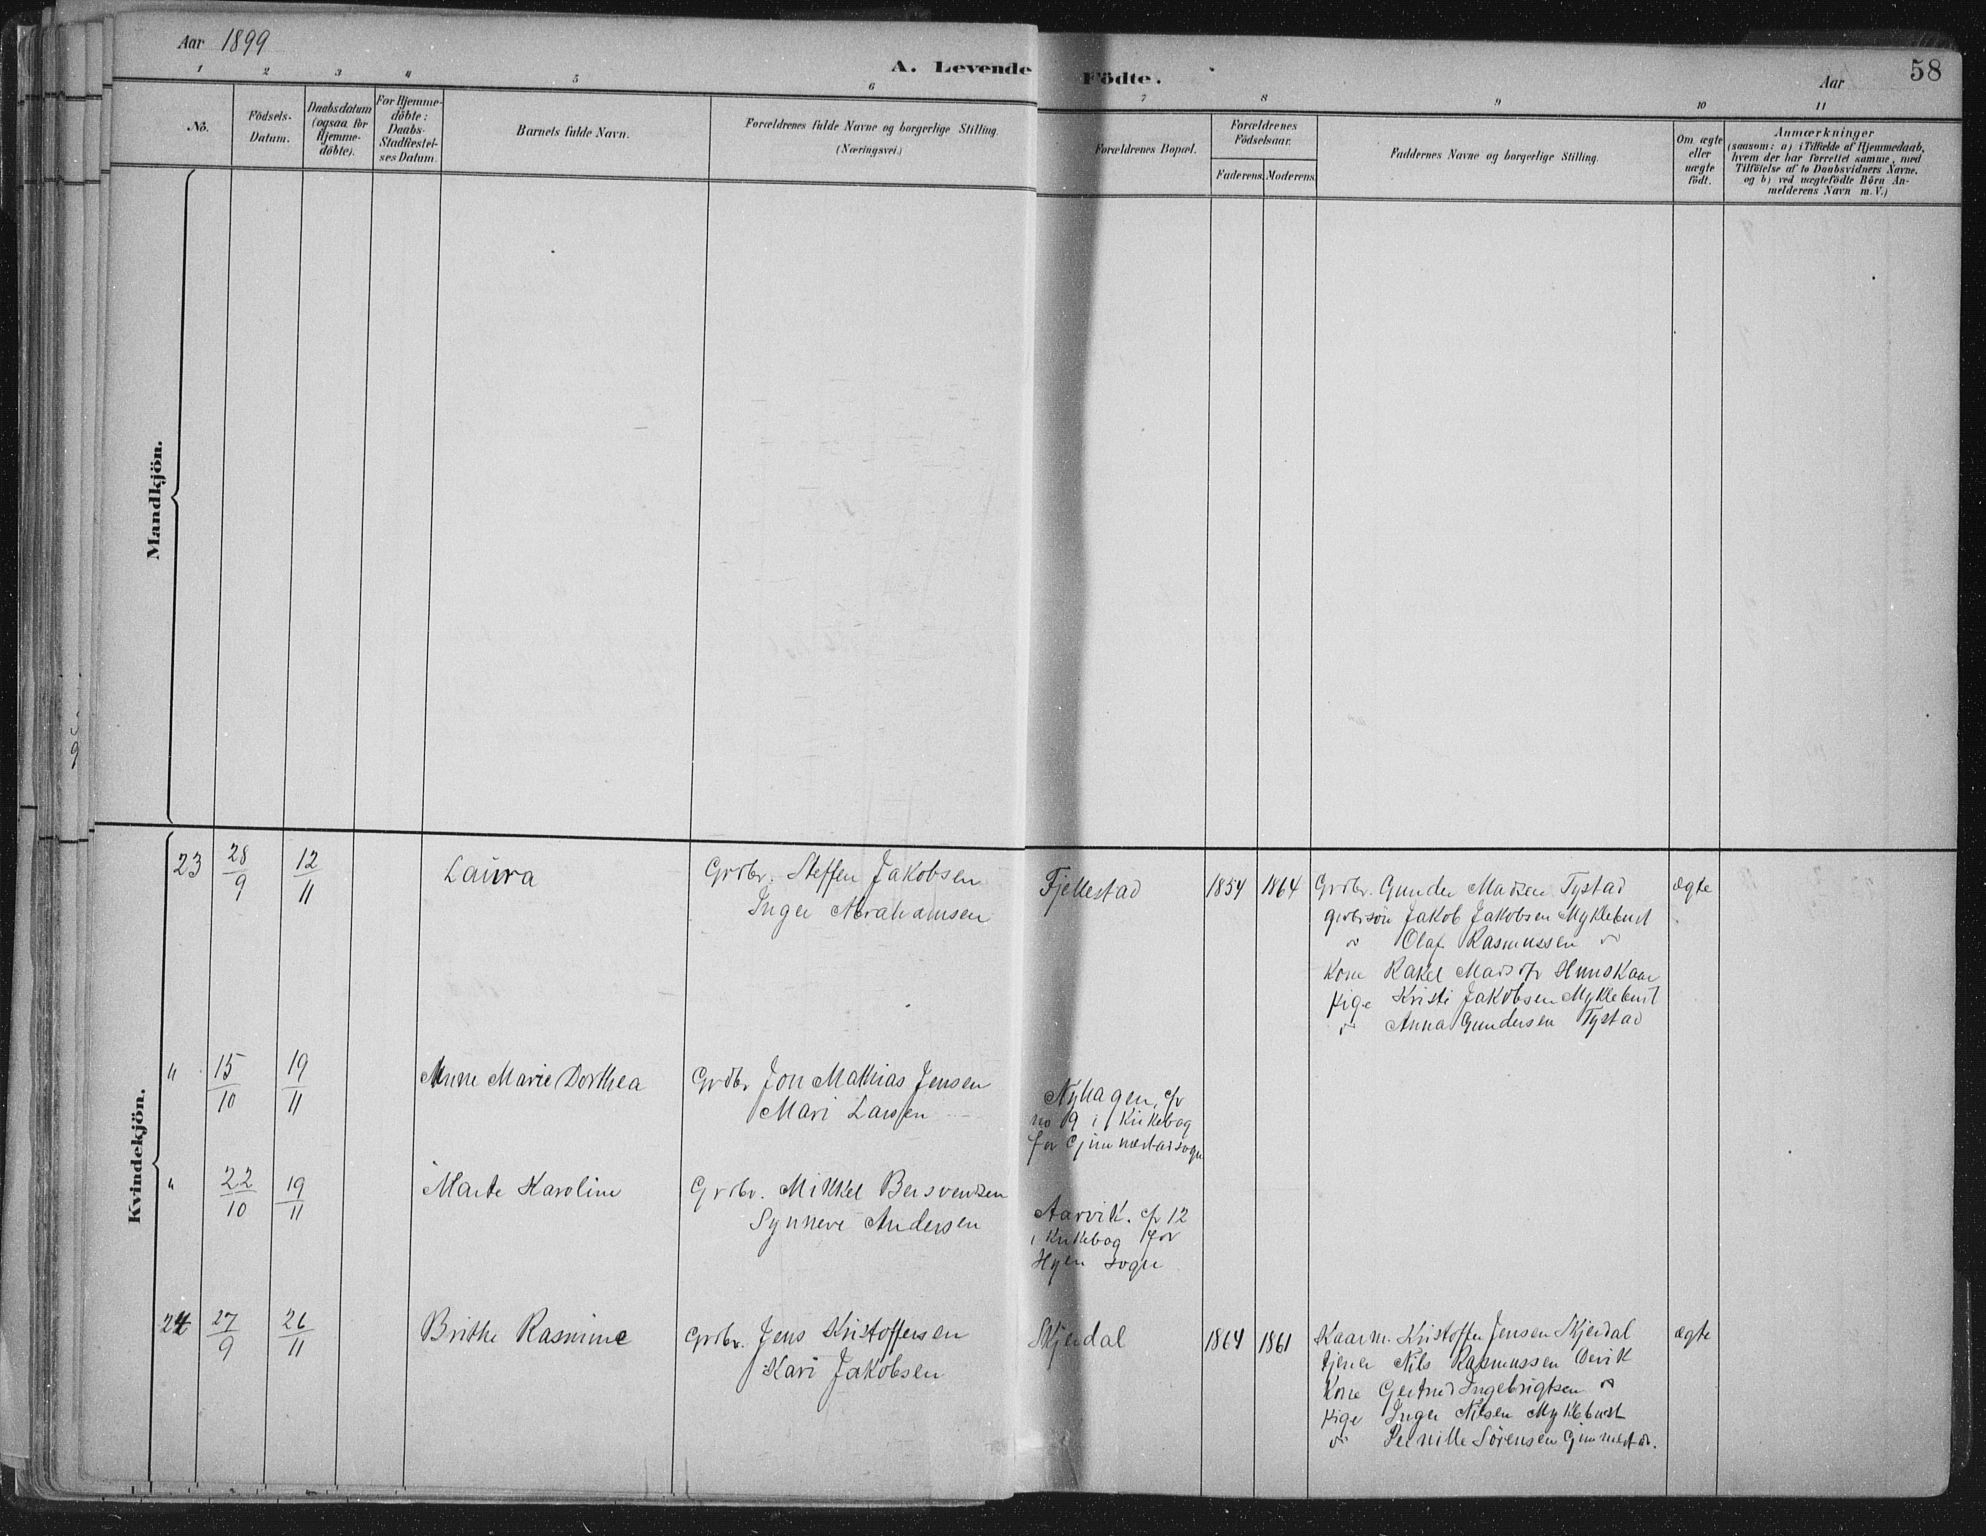 Aar 1899
A. Levende Födte.
Aar
58
1 2 3 4 5 6 7 8 9 10 11
No.
Födsels-
Datum.
Daabsdatum
(ogsaa for
Hjemme-
döbte).
For Hjemme-
döbte:
Daabs-
Stadfæstel-
ses Datum.
Barnets fulde Navn.
Forældrenes fulde Navne og borgerlige Stilling.
(Næringsvei.)
Forældrenes Bopæl.
Forældrenes
Födselsaar.
Faderens. Moderens.
Faddernes Navne og borgerlige Stilling.
Om ægte
eller
uægte
födt.
Anmærkninger
(saasom: a) i Tilfælde af Hjemmedaab,
hvem der har forrettet samme, med
Tilföielse af to Daabsvidners Navne,
og b) ved uægtefödte Börn An-
melderens Navn m.V.)
Mandkjön.
Kvindekjön.
23 28/9 12/11 Laura
Grdbr. Steffen Jakobsen
Inger Abrahamsen
Fjellestad
1854 1864
Grdbr. Gunder Madsen Tystad
grdbrsön Jakob Jakobsen Myklebust
" Olaf Rasmussen "
Kone Rakel Madsdtr Hunskaar
Pige Kristi Jakobsen Myklebust
" Anna Gundersen Tystad
ægte
" 15/10 19/11 Anne Marie Dorthea
Grdbr Jon Mathias Jensen
Mari Larsen
Nyhagen, cfr
no 19 i Kirkebog
for Gimmestadsogn
" 22/10 19/11 Marte Karoline
Grdbr. Mikkel Bersvendsen
Synneve Andersen
Aarvik. cfr 12
i Kirkebog for
Hyen sogn
24 27/9 26/11 Brithe Rasmine
Grdbr. Jens Kristoffersen
Kari Jakobsen
Skjerdal
1864 1861
Kaarm. Kristoffer Jensen Skjerdal
tjener Nils Rasmussen
Kone Gjertrud Ingebrigtsen "
Pige Inger Nilsen Myklebust
" Pernille Sörensen Gimmestad.
ægte